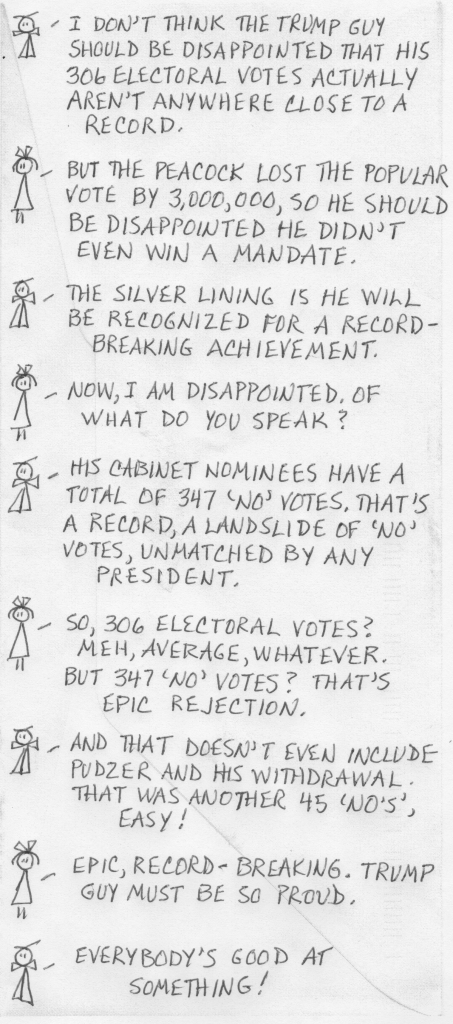 I DON'T THINK THE TRUMP GUY
SHOULD BE DISAPPOINTED THAT HIS
306 ELECTORAL VOTES ACTUALLY
AREN'T ANYWHERE CLOSE TO A
RECORD.
BUT THE PEACOCK LOST THE POPULAR
VOTE BY 3,000,000, SO HE SHOULD
BE DISAPPOINTED HE DIDN'T
EVEN WIN A MANDATE.
THE SILVER LINING IS HE WILL
BE RECOGNIZED FOR A RECORD-
BREAKING ACHIEVEMENT.
NOW, I AM DISAPPOINTED. OF
WHAT DO YOU SPEAK?
HIS CABINET NOMINEES HAVE A
TOTAL OF 347 'NO' VOTES. THAT'S
A RECORD, A LANDSLIDE OF 'NO'
VOTES, UNMATCHED BY ANY
PRESIDENT.
SO, 306 ELECTORAL VOTES?
MEH, AVERAGE, WHATEVER.
BUT 347 'NO' VOTES? THAT'S
EPIC REJECTION.
AND THAT DOESN'T EVEN INCLUDE
PUDZER AND HIS WITHDRAWAL.
THAT WAS ANOTHER 45 'NO'S',
EASY!
EPIC, RECORD-BREAKING. TRUMP
GUY MUST BE SO PROUD.
EVERYBODY'S GOOD AT
SOMETHING!